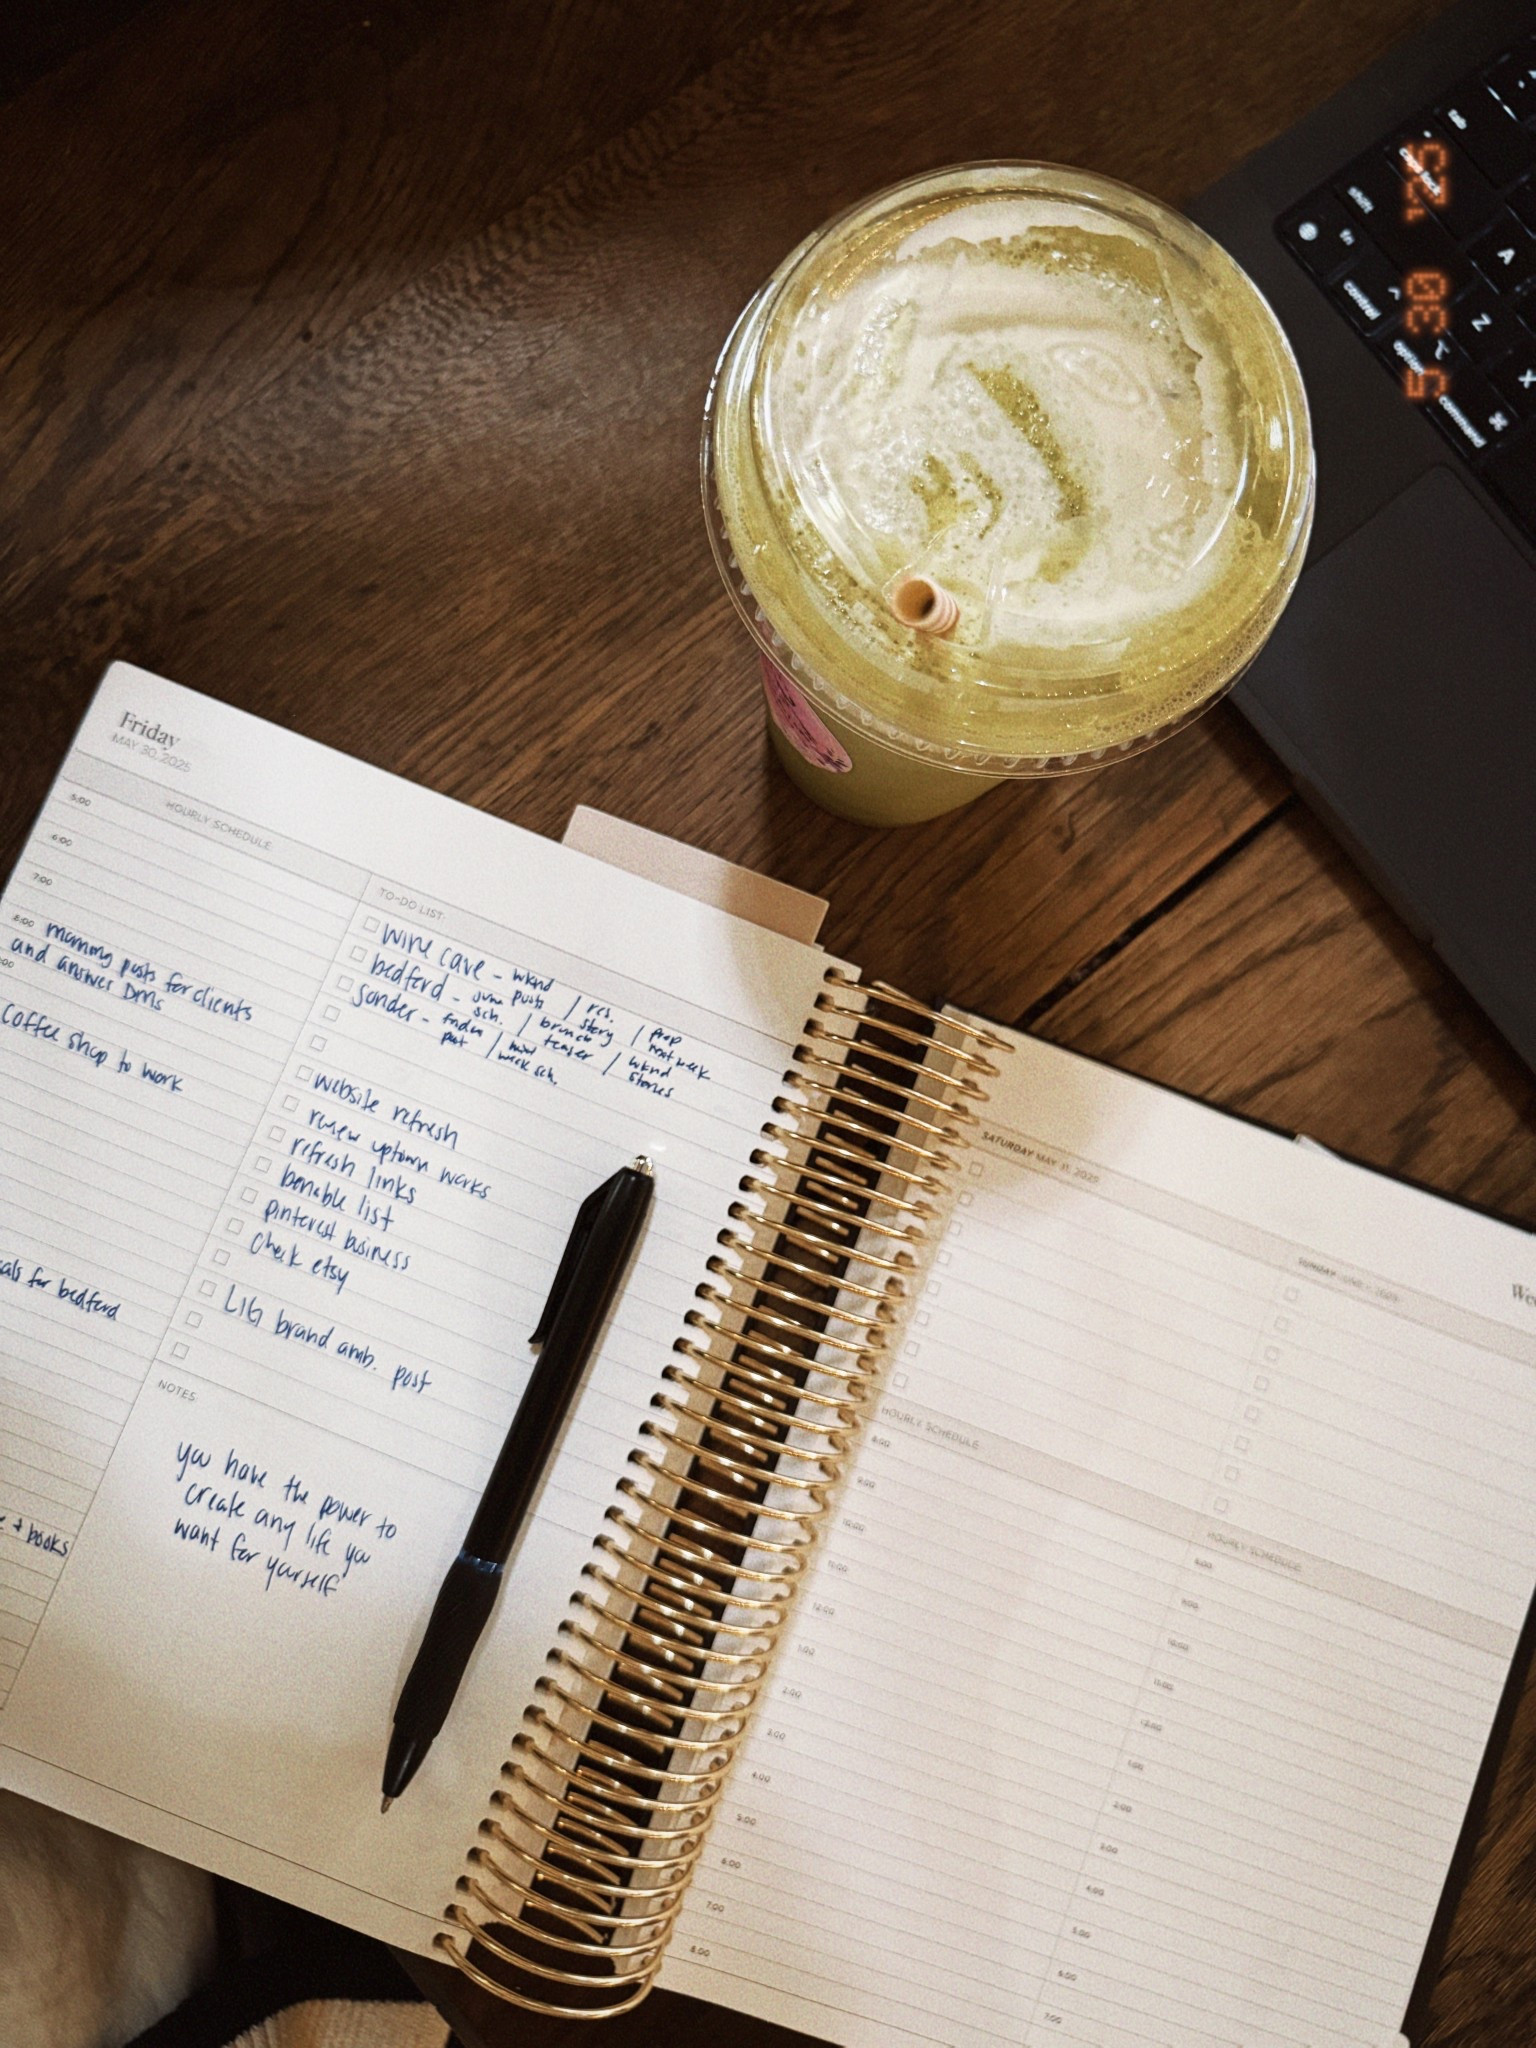 Friday
MAY 30, 2025
HOURLY SCHEDULE
5:00
6:00
7:00
8:00 morning posts for clients
and answer DMs
coffee shop to work
for bedford
+ books
TO-DO LIST:
wine cave - wknd / res.
bedford - june posts sch. / brunch story teaser / prep next week wknd stories
sonder - friday post / next week sch.
website refresh
renew uptown works
refresh links
benable list
pinterest business
check etsy
LIG brand amb. post
NOTES
you have the power to
create any life you
want for yourself
SATURDAY MAY 31, 2025
HOURLY SCHEDULE
8:00
9:00
10:00
11:00
12:00
1:00
2:00
3:00
4:00
5:00
6:00
7:00
8:00
SUNDAY JUNE 1, 2025
HOURLY SCHEDULE
8:00
9:00
10:00
11:00
12:00
1:00
2:00
3:00
4:00
5:00
6:00
7:00
tab
caps lock
shift
fn
control
option
command
A
Z
X
5 30 '25